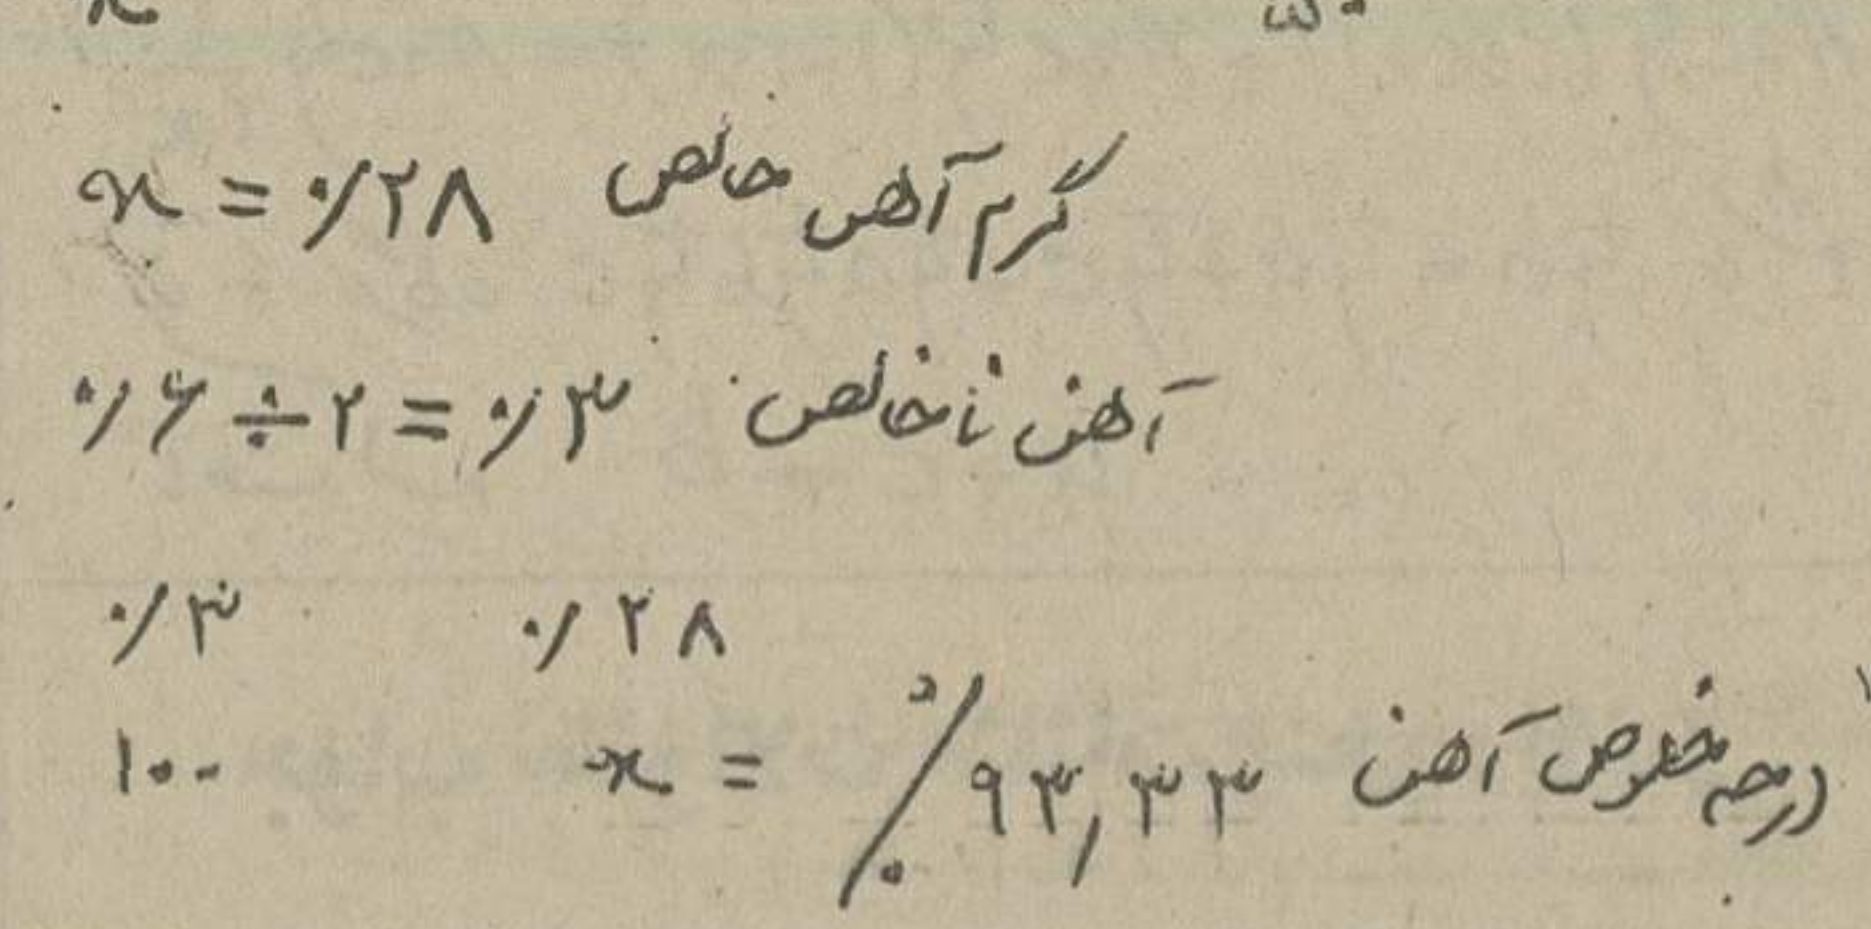 x = ۰/۲۸ گرم آهن خالص
۰/۶ ÷ ۲ = ۰/۳ آهن ناخالص
۰/۳ ۰/۲۸
۱۰۰ x = ٪۹۳,۳۳ درجه خلوص آهن